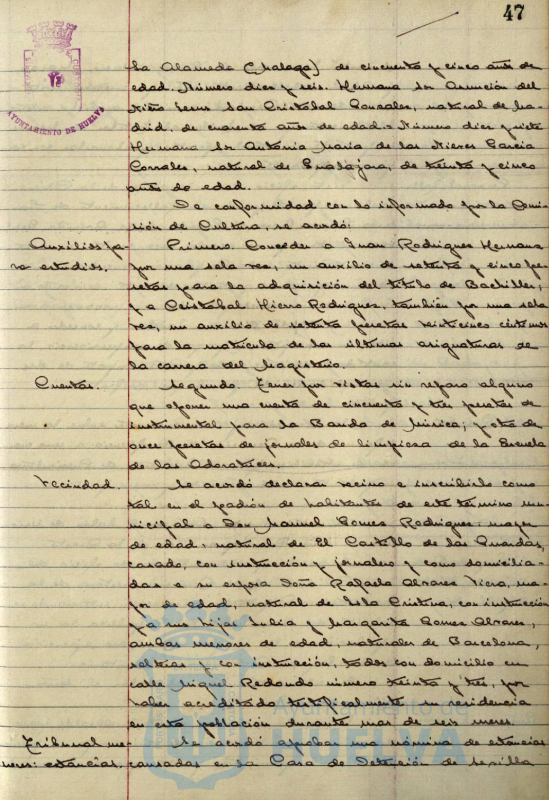 47
AYUNTAMIENTO DE HUELVA
la Alameda (Malaga) de cincuenta y cinco años de
edad. Número diez y seis. Hermana Sor Asunción del
Niño Jesus San Cristobal Gonzales, natural de Ma-
drid, de cuarenta años de edad = Número diez y siete
Hermana Sor Antonia Maria de las Nieves Garcia
Corrales, natural de Gualajara, de treinta y cinco
años de edad.
De conformidad con lo informado por la Comi-
sión de Cultura, se acordó:
Auxilios pa-
ra estudios.
Primero. Conceder a Juan Rodriguez Hermana
por una sola vez, un auxilio de setenta y cinco pe-
setas para la adquisición del titulo de Bachiller;
y a Cristobal Hierro Rodriguez, también por una sola
vez, un auxilio de setenta pesetas veinticinco centimos
para la matricula de las últimas asignaturas de
la carrera del Magisterio.
Cuentas.
Segundo. Tener por vistas sin reparo alguno
que oponer una cuenta de cincuenta y tres pesetas de
instrumental para la Banda de Música; y otra de
once pesetas de jornales de limpieza de la Escuela
de las Adoratrices.
Vecindad.
Se acordó declarar vecino e inscribirlo como
tal en el padrón de habitantes de este término mu-
nicipal a Don Manuel Gomez Rodriguez, mayor
de edad, natural de El Castillo de las Guardas,
casado, con instrucción y jornalero y como domicilia-
das a su esposa Doña Rafaela Alvarez Viera, ma-
yor de edad, natural de Isla Cristina, con instrucción
y a sus hijas Julia y Margarita Gomez Alvarez,
ambas menores de edad, naturales de Barcelona,
solteras y con instrucción, todos con domicilio en
calle Miguel Redondo número treinta y tres, por
haber acreditado testificalmente su residencia
en esta población durante mas de seis meses.
Tribunal me-
nores: estancias.
Se acordó aprobar una nómina de estancias
causadas en la Casa de Detención de Sevilla
Ayuntamiento de
HUELVA